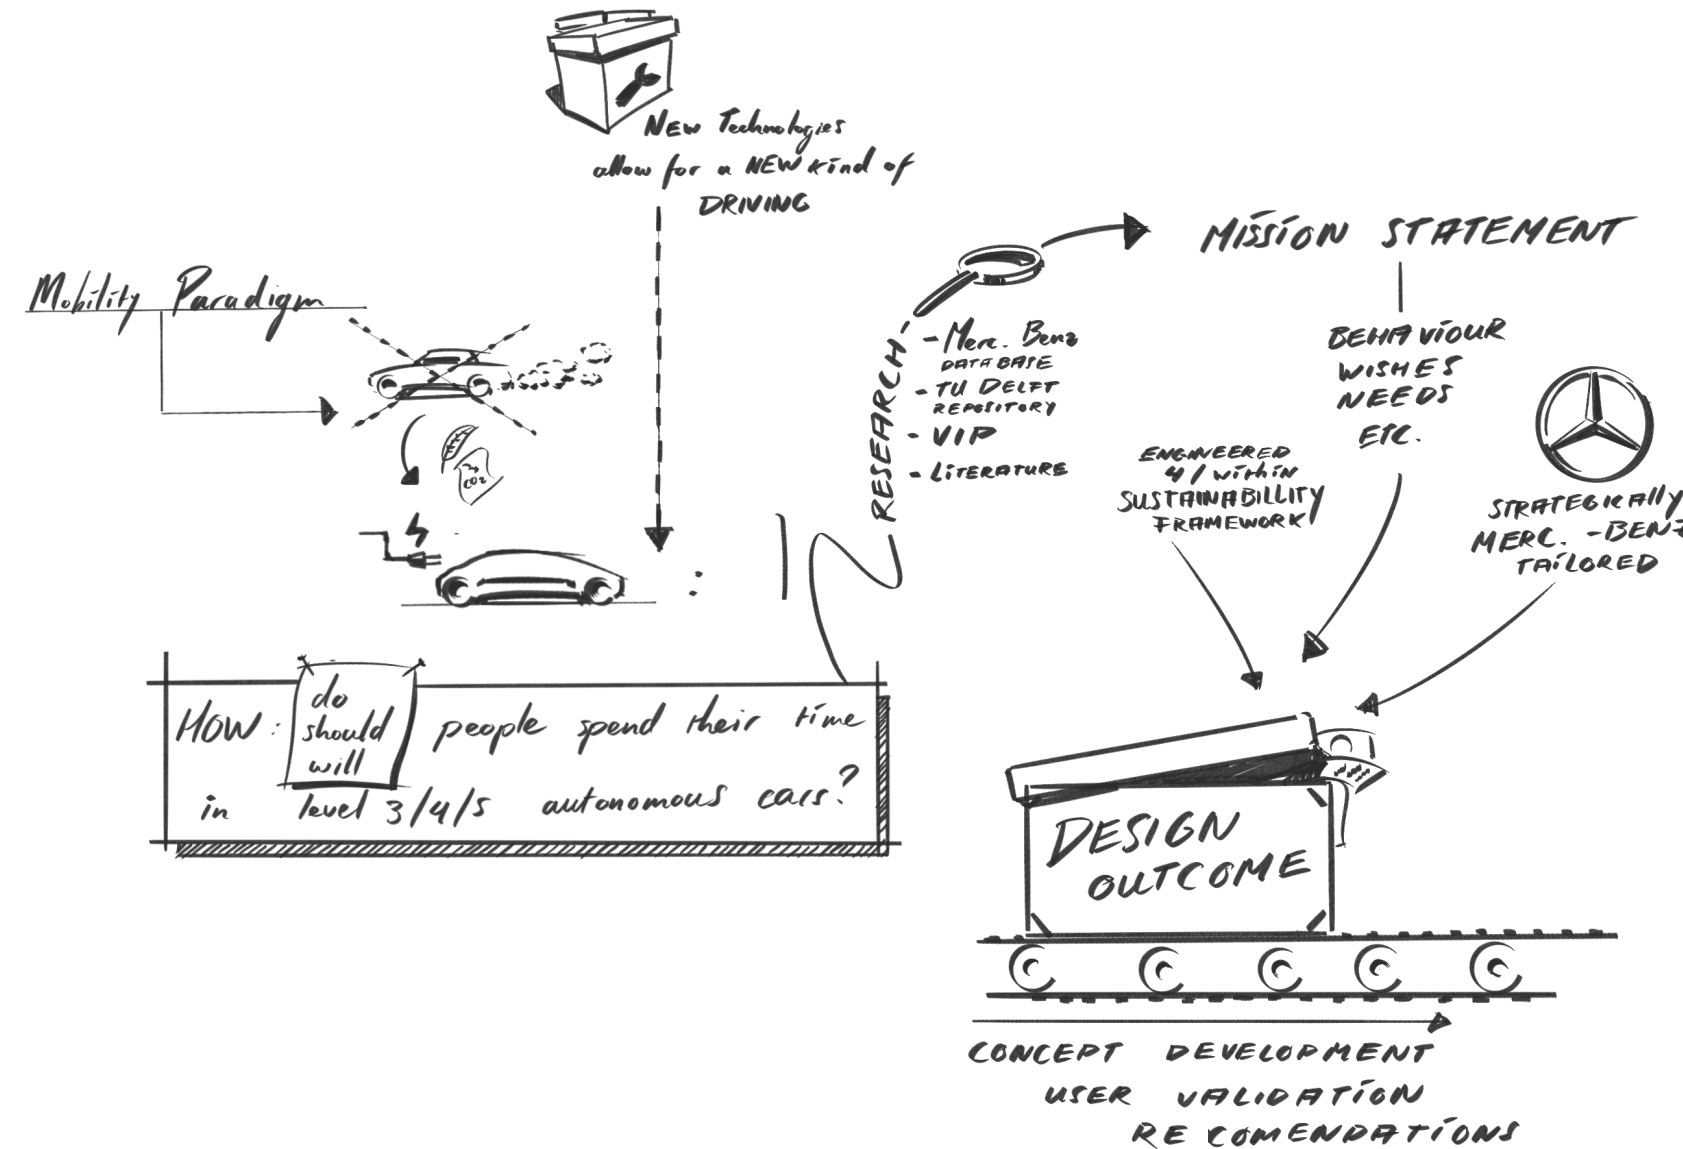 NEW Technologies
allow for a NEW kind of
DRIVING
Mobility Paradigm
CO2
HOW:
do
should
will
people spend their time
in level 3/4/5 autonomous cars?
RESEARCH
- Merc. Benz
DATABASE
- TU DELFT
REPOSITORY
- VIP
- LITERATURE
MISSION STATEMENT
BEHAVIOUR
WISHES
NEEDS
ETC.
ENGINEERED
4/within
SUSTAINABILLITY
FRAMEWORK
STRATEGICAlly
MERC. -BENZ
TAILORED
DESIGN
OUTCOME
CONCEPT DEVELOPMENT
USER VALIDATION
RECOMENDATIONS